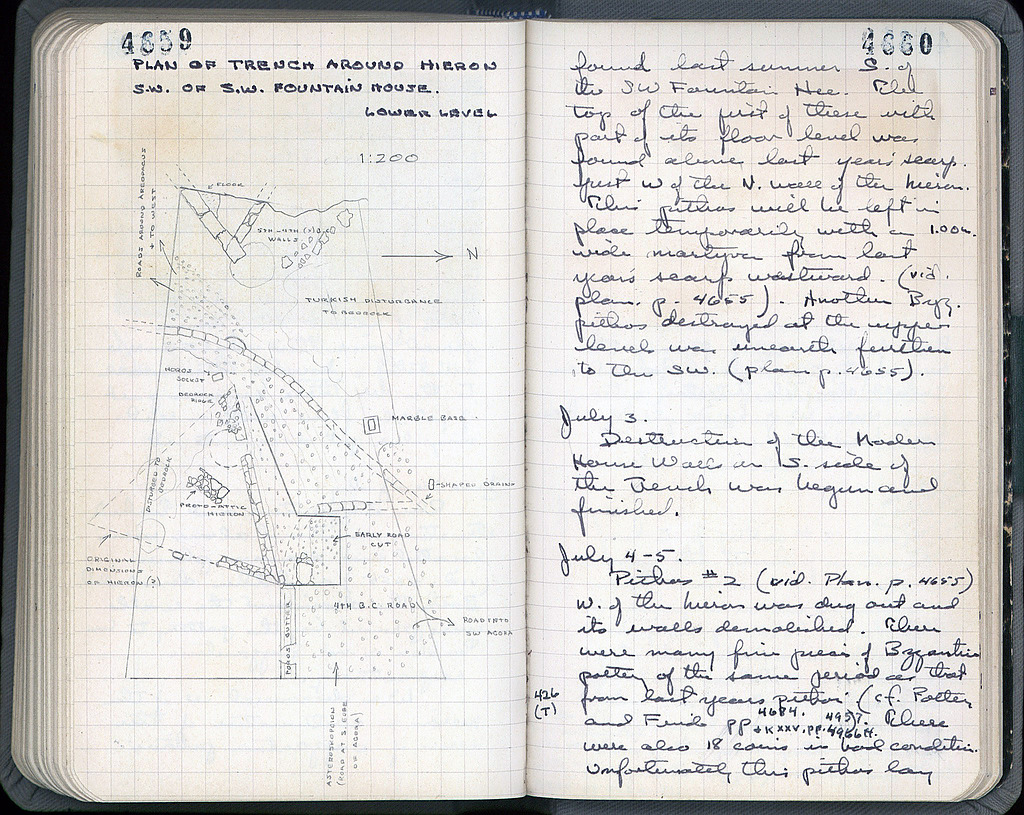 4659
PLAN OF TRENCH AROUND HIERON
S.W. OF S.W. FOUNTAIN HOUSE.
LOWER LEVEL
1:200
ROADS AROUND AREOPAGUS
+ TO WEST
FLOOR
5TH-4TH (?) B.C.
WALLS
N
TURKISH DISTURBANCE
TO BEDROCK
HOROS
SOCKET
BEDROCK
RIDGE
MARBLE BASE
DISTURBED TO
BEDROCK
-SHAPED DRAIN
PROTO-ATTIC
HIERON
EARLY ROAD
CUT
ORIGINAL
DIMENSIONS
OF HIERON (?)
4TH B.C. ROAD
ROAD INTO
SW AGORA
POROS GUTTER
ASTEROSKOPEION
(ROAD AT S. EDGE
OF AGORA)
4660
found last summer S. of
the SW Fountain Hse. The
top of the first of these with
part of its floor level was
found above last year's scarp
just W of the N. wall of the hieron.
This pithos will be left in
place temporarily with a 1.00m.
wide martyra from last
year's scarp westward. (vid.
plan. p. 4655). Another Byz.
pithos destroyed at the upper
levels was unearth further
to the SW. (plan p. 4655).
July 3.
Destruction of the Modern
House Walls on S. side of
the Trench was begun and
finished.
July 4-5.
Pithos #2 (vid. Plan. p. 4655)
W. of the hieron was dug out and
its walls demolished. There
were many fine pieces of Byzantine
pottery of the same period as that
from last years pithoi (cf. Pottery
426
(T)
and Finds pp 4684. 4957. There
+ K XXV, pp. 4966 ff.
were also 18 coins in bad condition.
Unfortunately this pithos lay